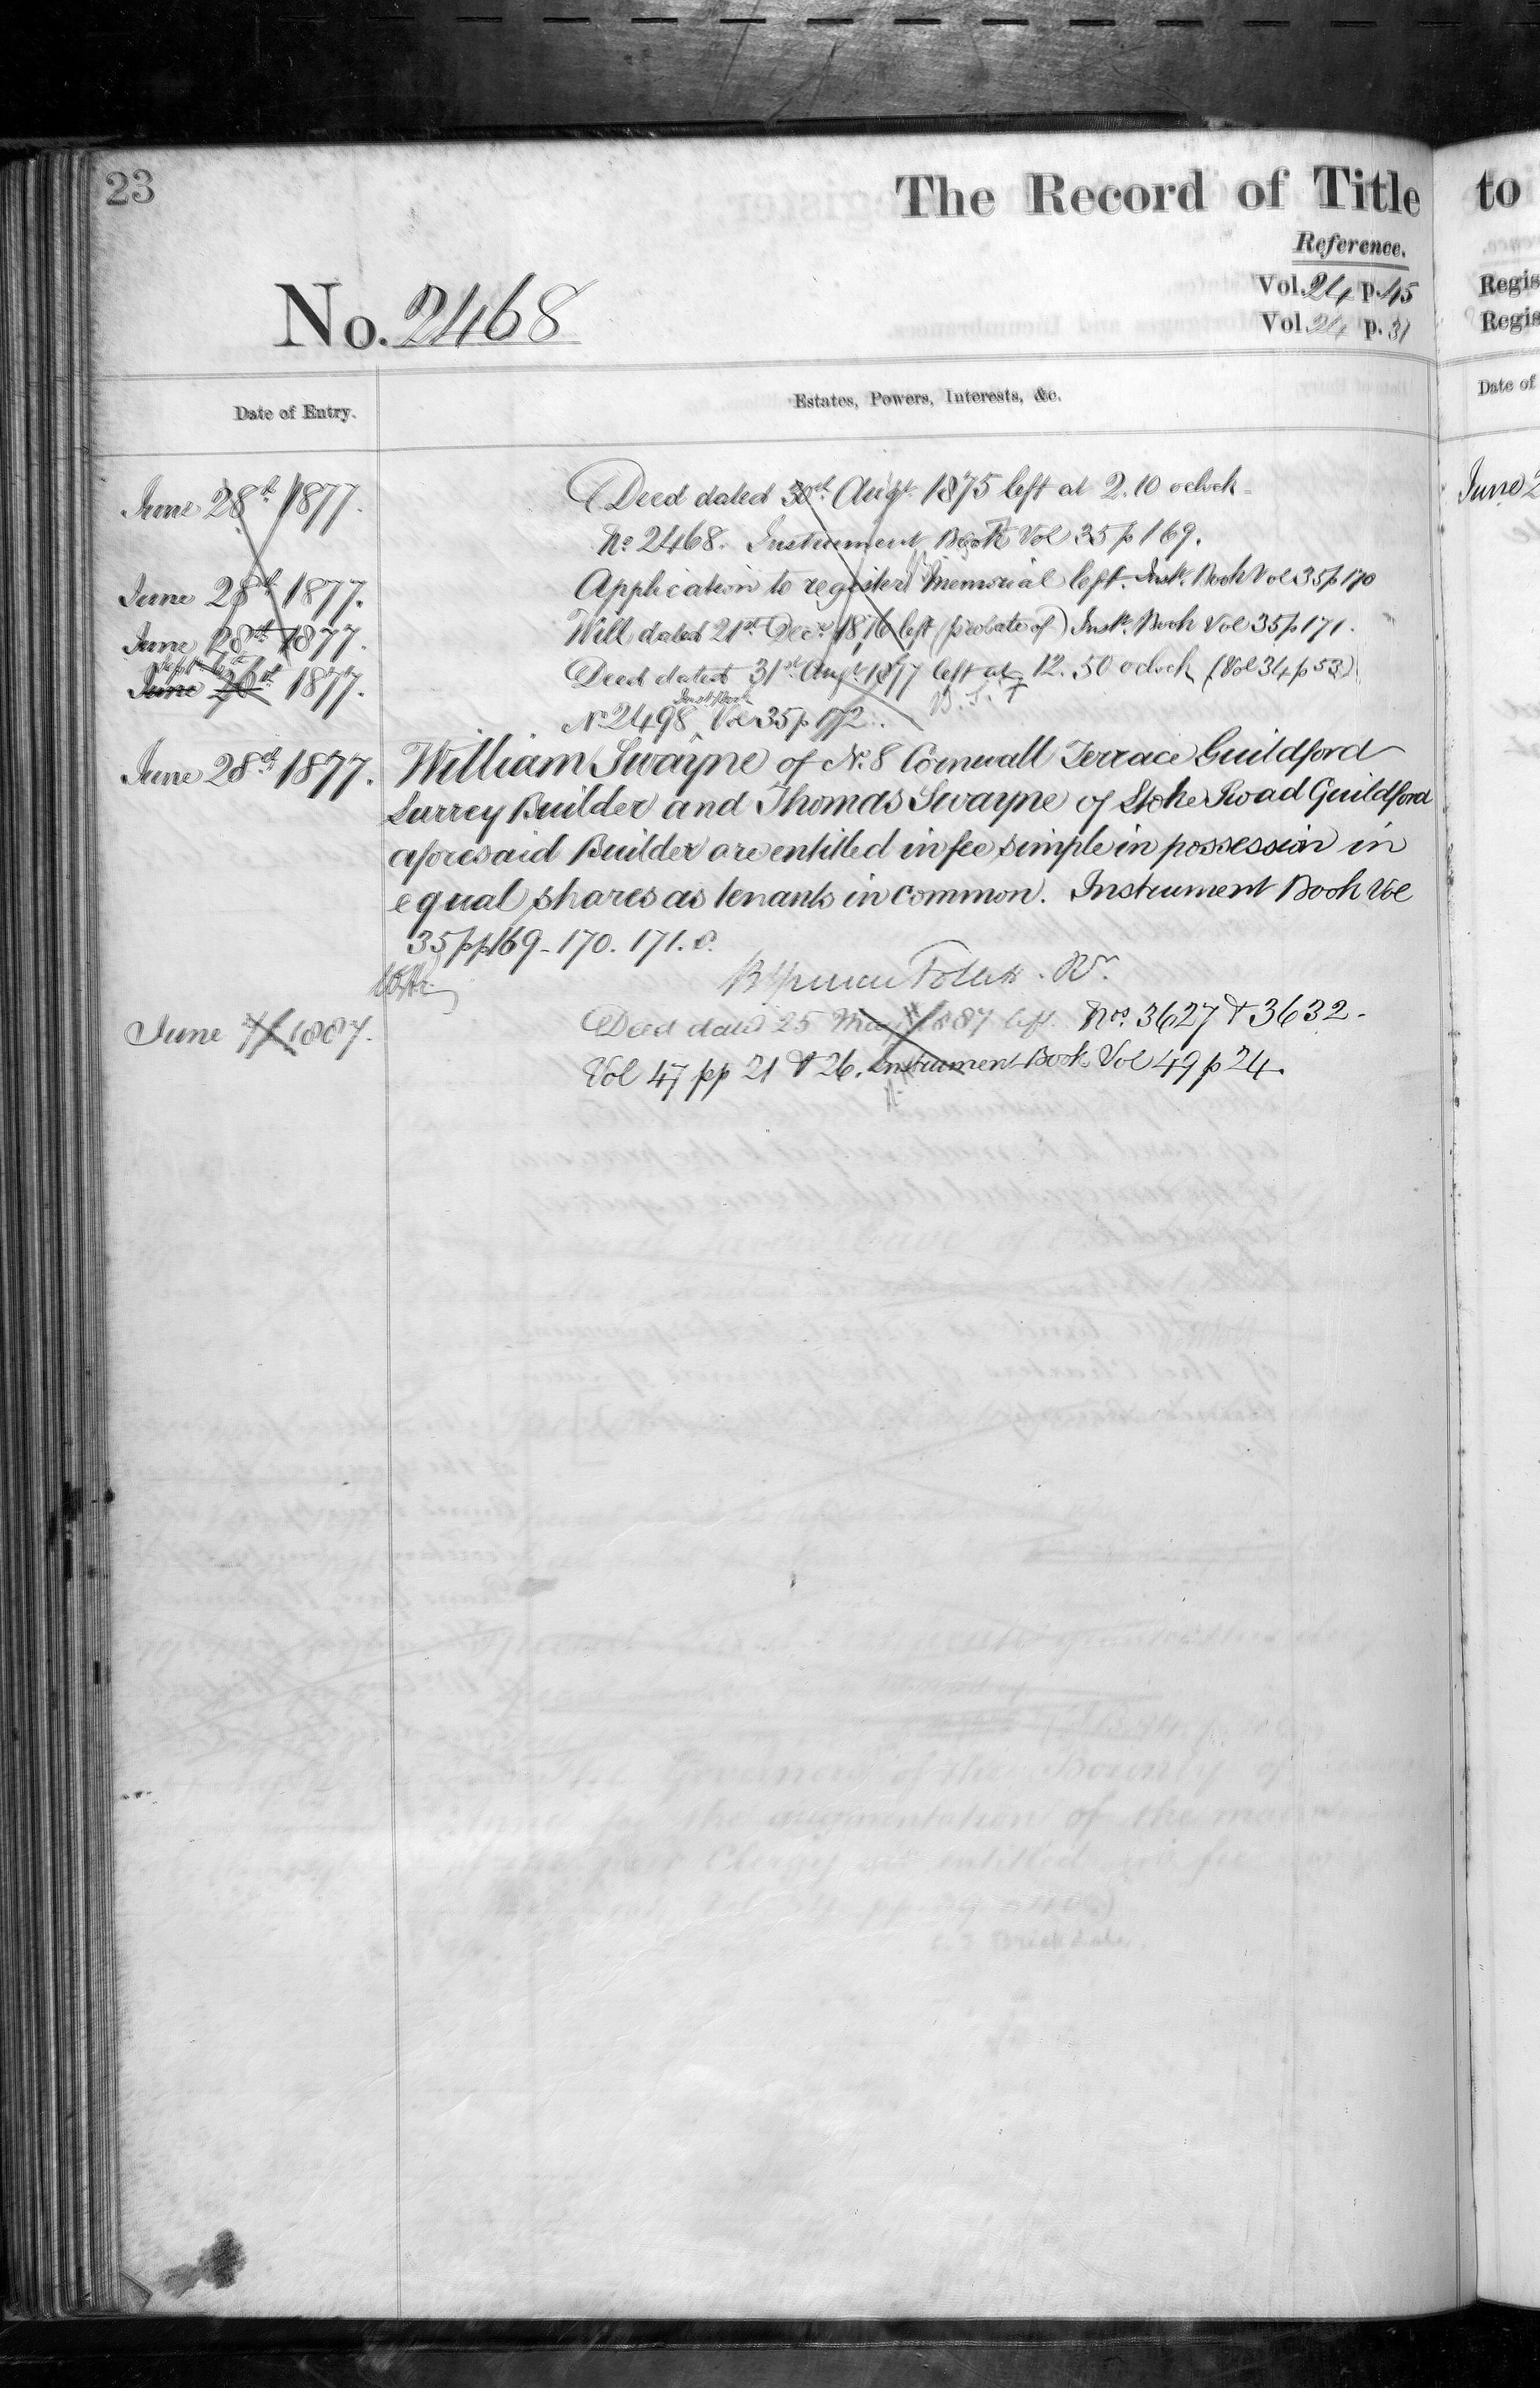 23
The Record of Title to
Reference.
Vol. 24 p. 45 Regis
Vol. 24 p. 31 Regis
No. 2468
Date of Entry.
Estates, Powers, Interests, &c.
Date of
June 28th 1877.
Deed dated 30th Augt. 1875 left at 2.10 oclock
June 2
No. 2468. Instrument Book Vol 35 p 169.
June 28th 1877.
Application to register Memorial left. Inst. Book Vol 35 p 170
June 28th 1877.
Will dated 21st Decr. 1876 left (probate of) Inst. Book Vol 35 p 171.
June 28th 1877.
Deed dated 31st Augt. 1877 left at 12.50 oclock (Vol 34 p 53)
No 2498 Inst Book Vol 35 p 172.
B. S. F
June 28th 1877.
William Swayne of No. 8 Cornwall Terrace Guildford
Surrey Builder and Thomas Swayne of Stoke Road Guildford
aforesaid Builder are entitled in fee simple in possession in
equal shares as tenants in common. Instrument Book Vol
35 pp 169-170. 171.
June 1887.
Deed dated 25 May 1887 left. Nos. 3627 & 3632.
Vol 47 pp 21 & 26. Instrument Book Vol 49 p 24.